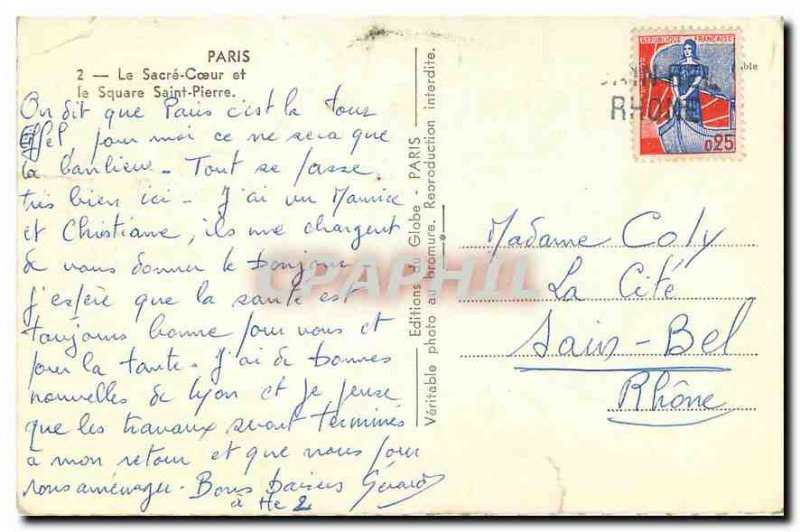 PARIS
2 — Le Sacré-Cœur et
le Square Saint-Pierre.
On dit que Paris c'est la tour
pour moi ce ne sera que
la banlieue. Tout se passe
très bien ici - J'ai vu Maurice
et Christiane, ils me chargent
de vous donner le bonjour
J'espère que la santé est
toujours bonne pour vous et
pour la tante. J'ai de bonnes
nouvelles de Lyon et je pense
que les travaux seront terminés
à mon retour et que nous pour
rons aménager - Bons baisers Gérard
à tte 2
Editions du Globe - PARIS
Véritable photo au bromure. Reproduction interdite.
REPUBLIQUE FRANÇAISE
0,25
RHONE
Madame Coly
La Cité
Sain-Bel
Rhône
CPAPHIL